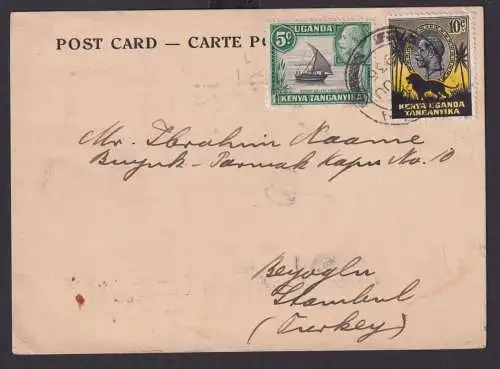 POST CARD — CARTE PO
5c UGANDA
KENYA TANGANYIKA
10c
KENYA UGANDA
TANGANYIKA
Mr. Ibrahim Naame
Buyuk-Parmak Kapu No. 10
Beyoglu
Stambul
(Turkey)